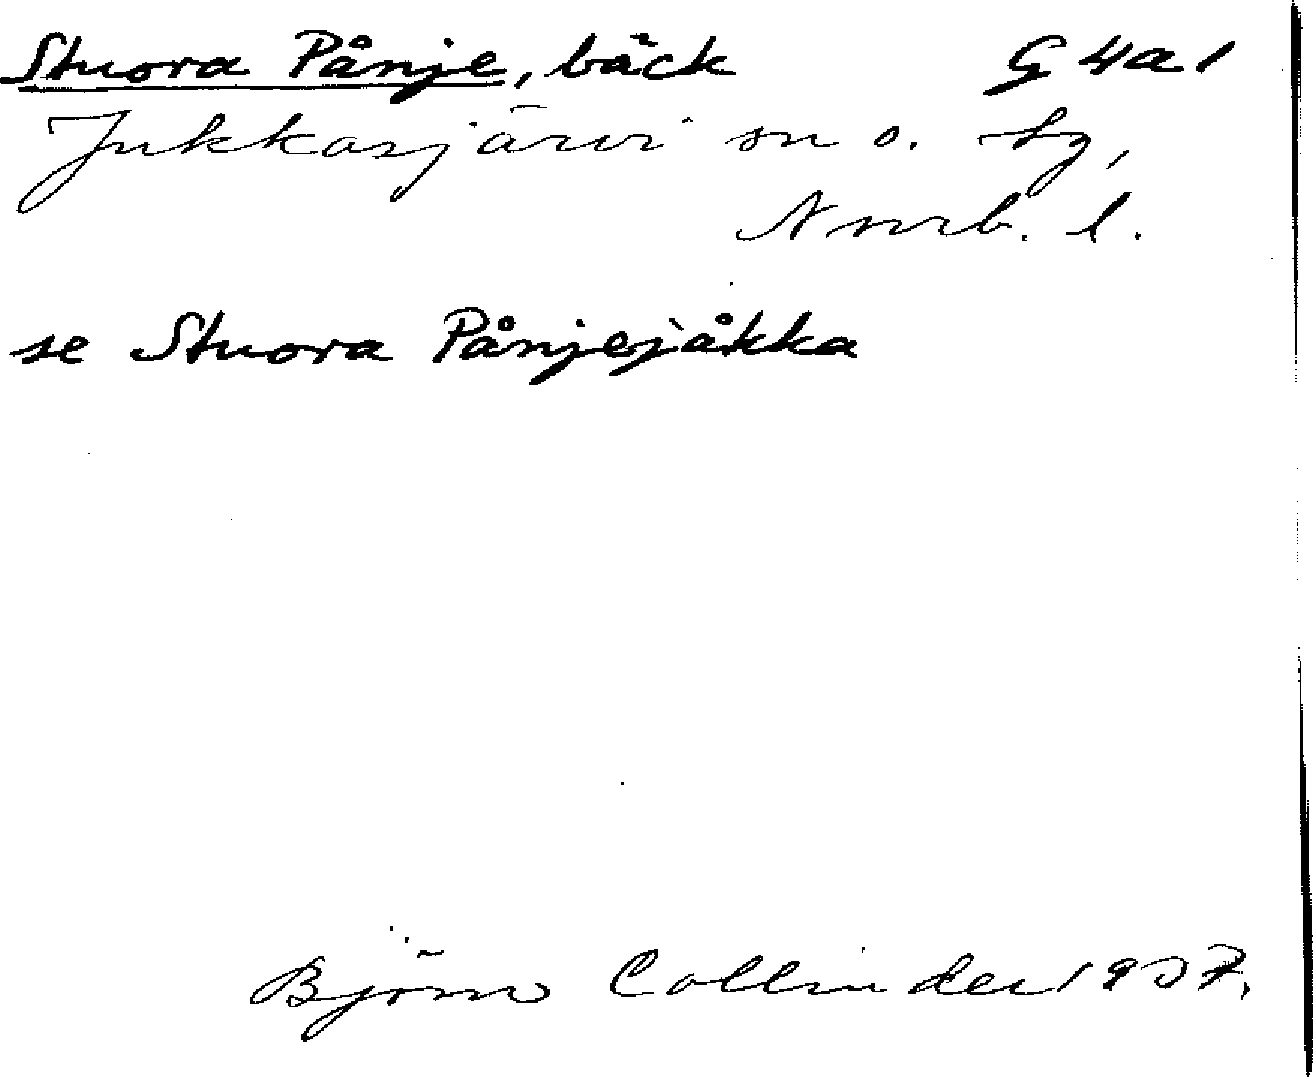 Stuora Pånje, bäck G 4a1
Jukkasjärvi sn o. tg,
Nnrb. l.
se Stuora Pånjejåkka
Björn Collinder 1937.